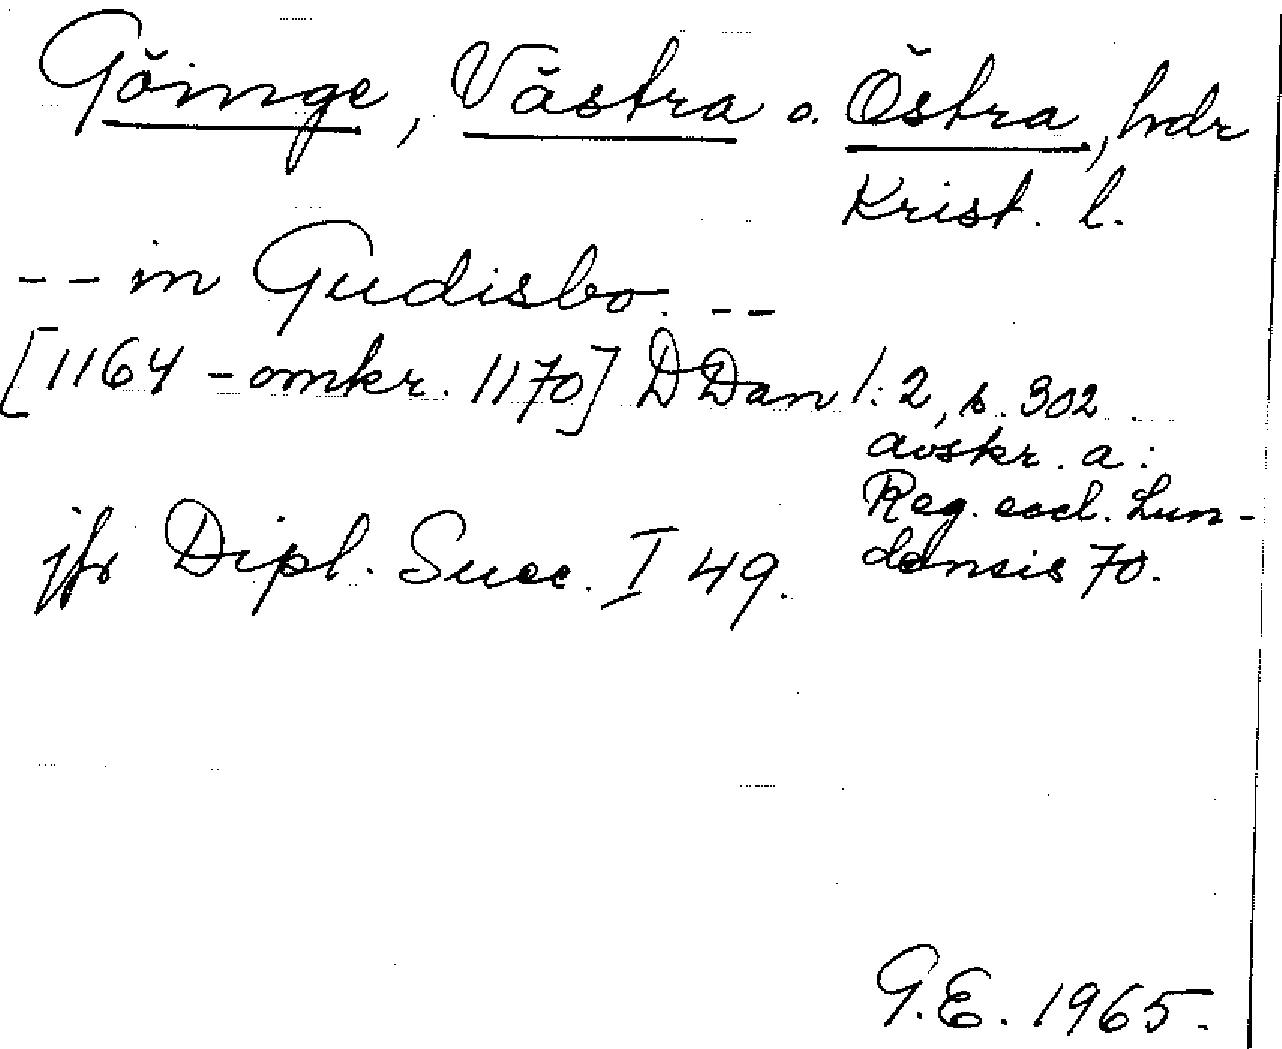 Göinge, Västra o. Östra, hdr
Krist. l.
-- in Gudisbo. --
[1164 - omkr. 1170] DDan 1:2, s. 302
avskr. a:
Reg. eccl. Lun-
densis 70.
jfr Dipl. Suec. I 49.
G.E. 1965.